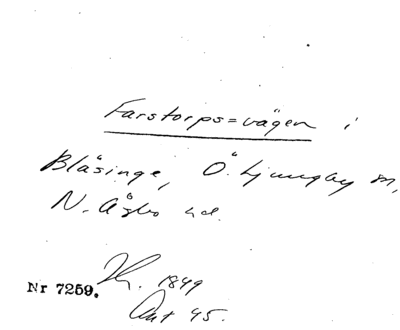 Farstorps=vägen i
Blåsinge, Ö. Ljungby sn,
N. Åsbo hd.
1849
Nr 7259.
Ant 45.